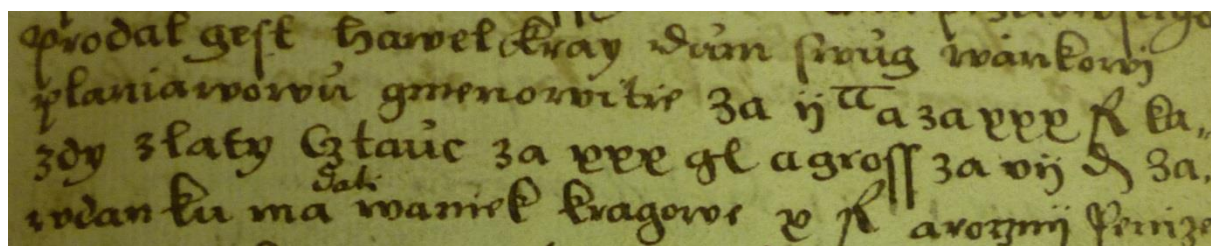 prodal gest hawel kray dům swůg wankowi
planiawowu gmenowitie za ij cc a za xxx fl ka„
zdy zlaty Cztauc za xxx gl a gross za vij d za„
wdanku ma dati waniek kragowe x fl a rocznij Penize